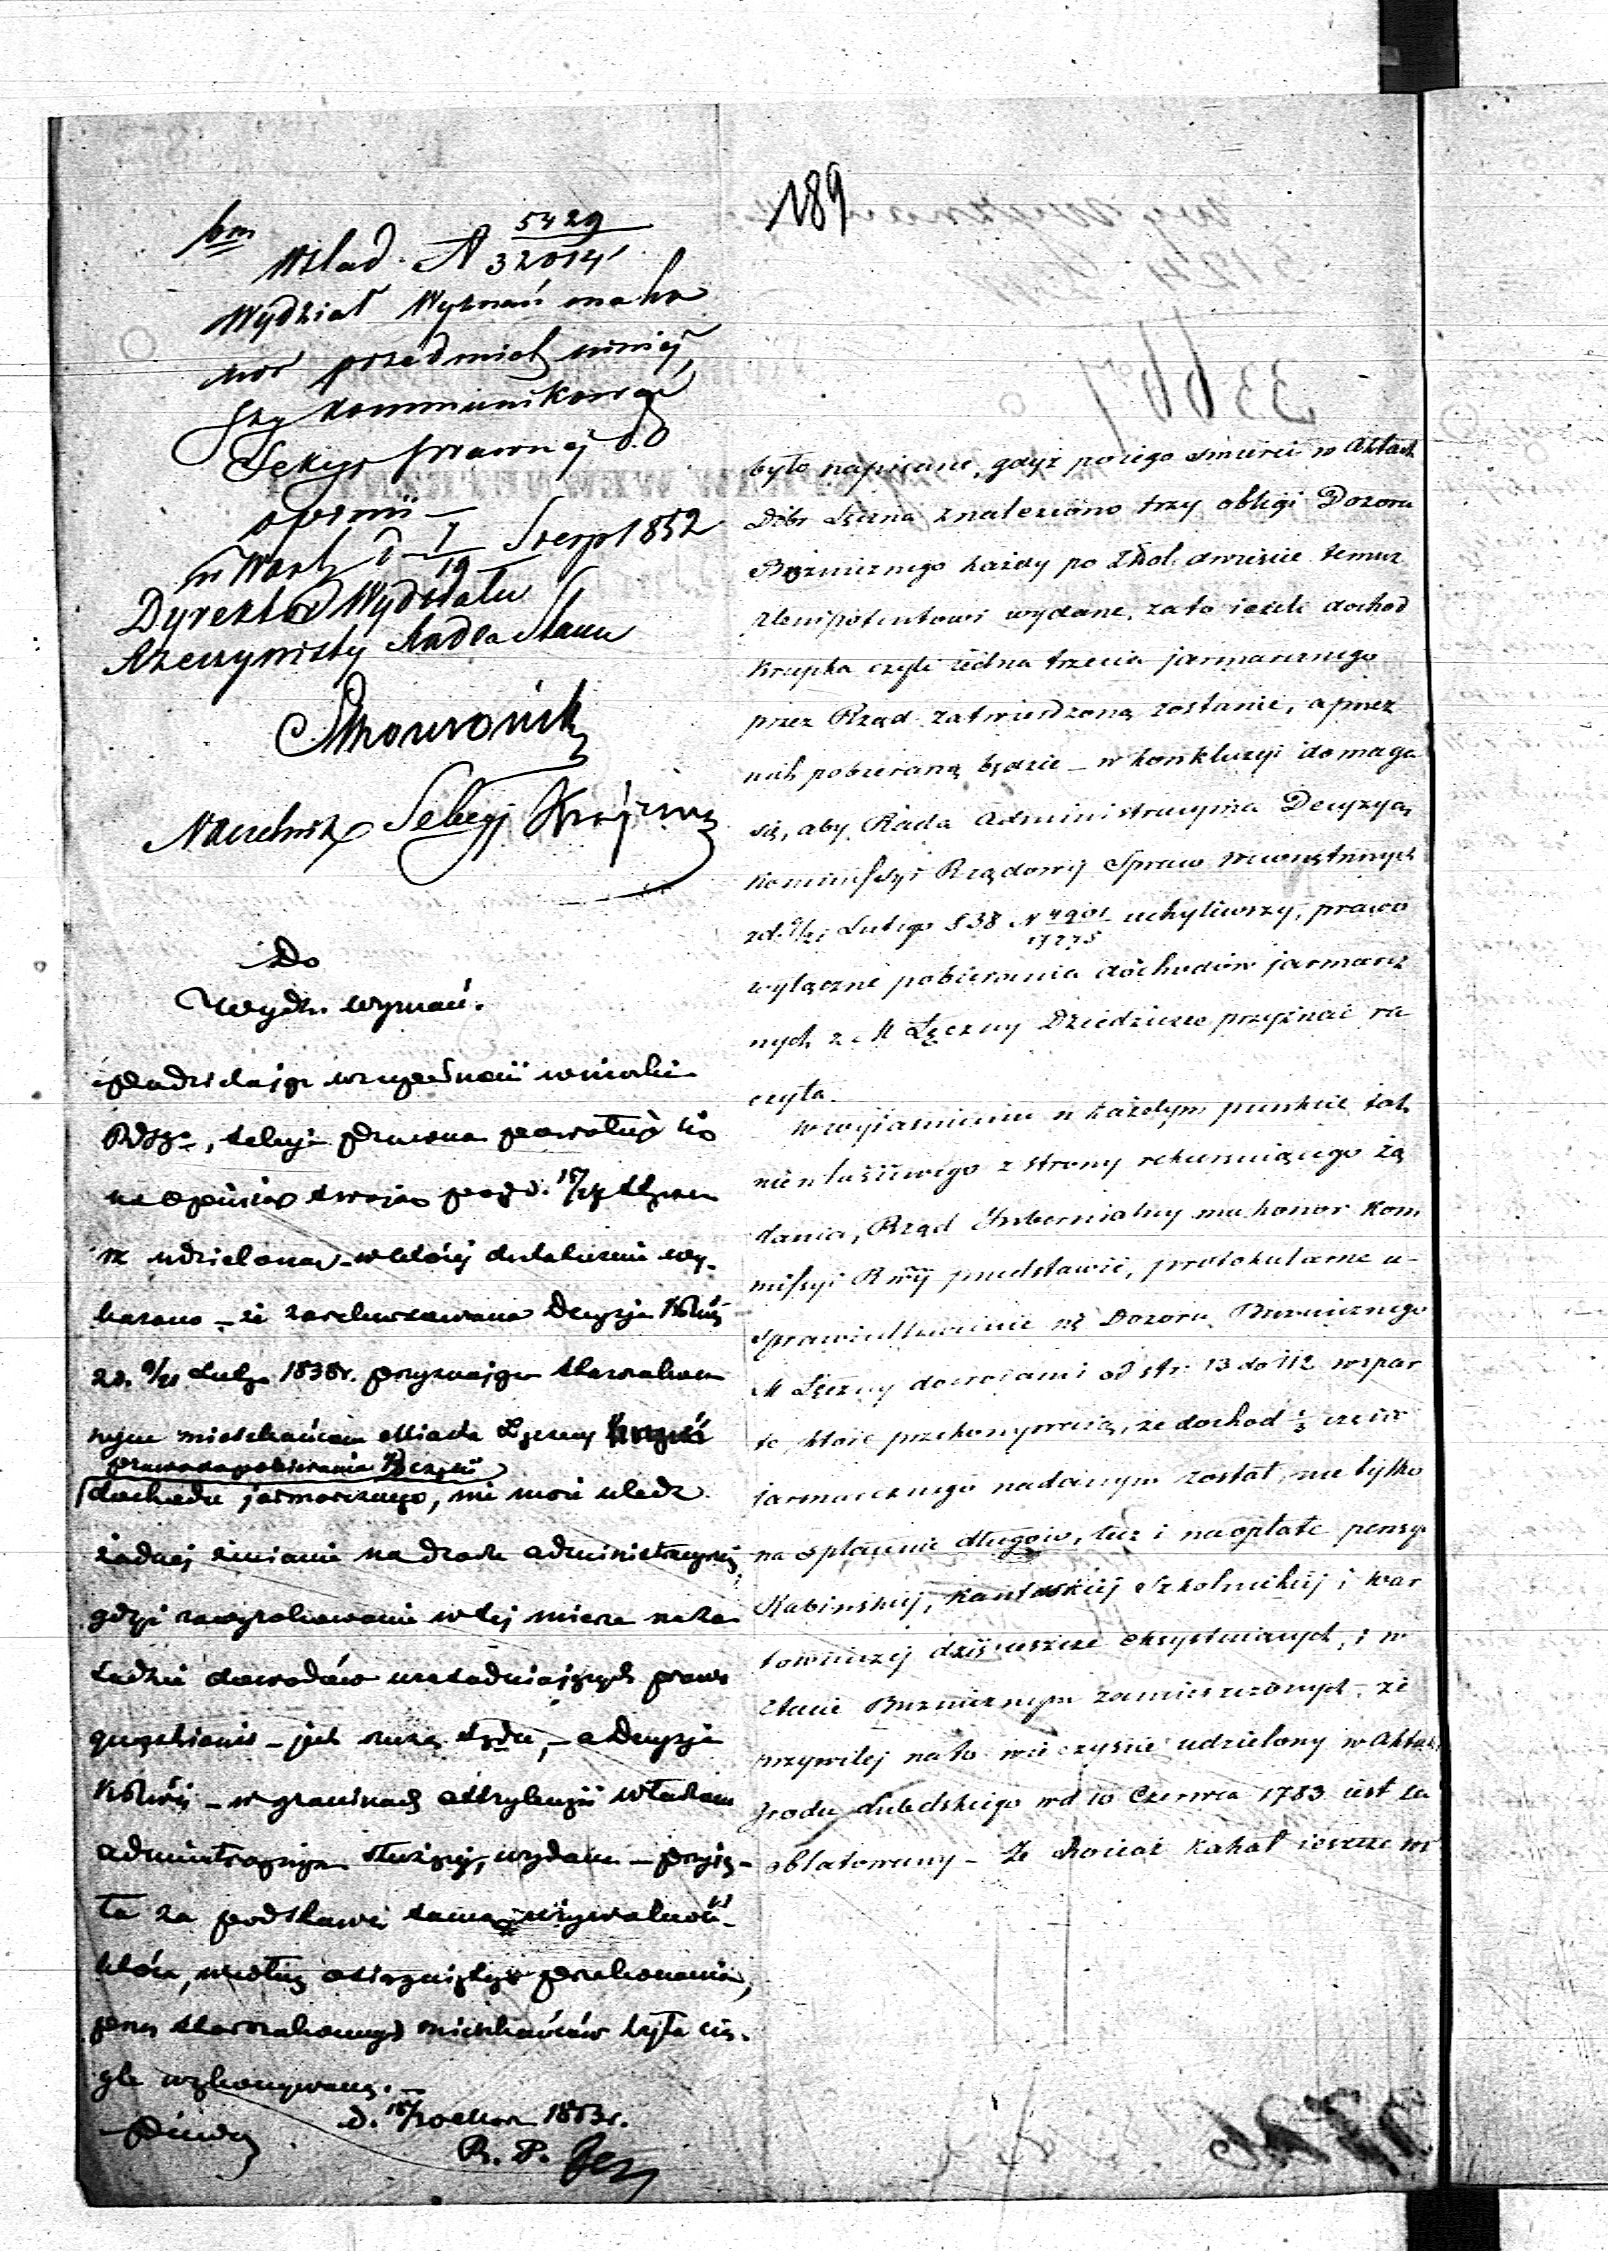 189
5429
Wkład. N 32014
Wydział Wyznań ma ho
nor przedmiot niniej
szy kommunikować
Sekcyi prawnej do
opinii —
w Warsz d 7/19 Sierp 1852
Dyrektor Wydziału
Rzeczywisty Radca Stanu
Naczelnik Sekcyi
Do
Wydz. wyznań.
podzielając w zupełności wnioski
sekcyja prawna powołuje się
na opinią swoją pod d.
udzieloną w której dostatecznie wy-
kazano – że zarekursowana Decyzja
z d. 9/21 Lutego 1838 r. przyznająca starozakon
nym mieszkańcom Miasta Łęczny
prawo do pobierania części
dochodu jarmarcznego, nie może uledz
żadnej zmianie na drodze administracyjnej,
gdyż zawyrokowanie w tej mierze na za
sadzie dowodów uzasadniających prawo
jest rzeczą Sądu, – a Decyzja
– w granicach attrybucyi władzom
administracyjnym służącej, wydana – przyję-
ta za podstawę samą używalność
która, według
przez starozakonnych mieszkańców była cią-
gle wykonywaną. —
1853 r.
R. P.
było napisane, gdyż po iego śmierci w Aktach
Dóbr Łęczna znaleziono trzy obligi Dozoru
Bóżniczego każdy po dwieście temuż
Plenipotentowi wydane, za to ieżeli dochod
Krupka czyli iedna trzecia jarmarcznego
przez Rząd zatwierdzoną zostanie, a przez
nich pobieraną będzie – w konkluzyi domaga
się, aby Rada Administracyjna Decyzyą
Kommissyi Rządowej Spraw Wewnętrznych
z d. 9/21 Lutego 838 N 4901/17275 uchyliwszy, prawo
wyłączne pobierania dochodów jarmarcz
nych z M Łęczny Dziedzicowi przyznać ra
czyła.
W wyjaśnieniu w każdym punkcie tak
niewłaściwego z strony rekursującego żą
dania, Rząd Gubernialny ma honor Kom
missyi Rwéj przedstawić, protokularne u-
sprawiedliwienie się Dozoru Bóżnicznego
M Łęczny dowodami od str. 13 do 112 wspar
te, które przekonywaią, że dochod ⅓ części
jarmarcznego nadanym został, nie tylko
na spłacenie długów, lecz i na opłatę pensyi
Rabinskiej, Kantorskiej Szkolnickiej i War
towniczej dziś ieszcze exystuiących, i w
Etacie Bożnicznym zamieszczonych, że
przywilej na to wieczyście udzielony w Aktach
Grodu Lubelskiego w d 10 Czerwca 1783 iest za
oblatowany – Że chociaż Kahał ieszcze w